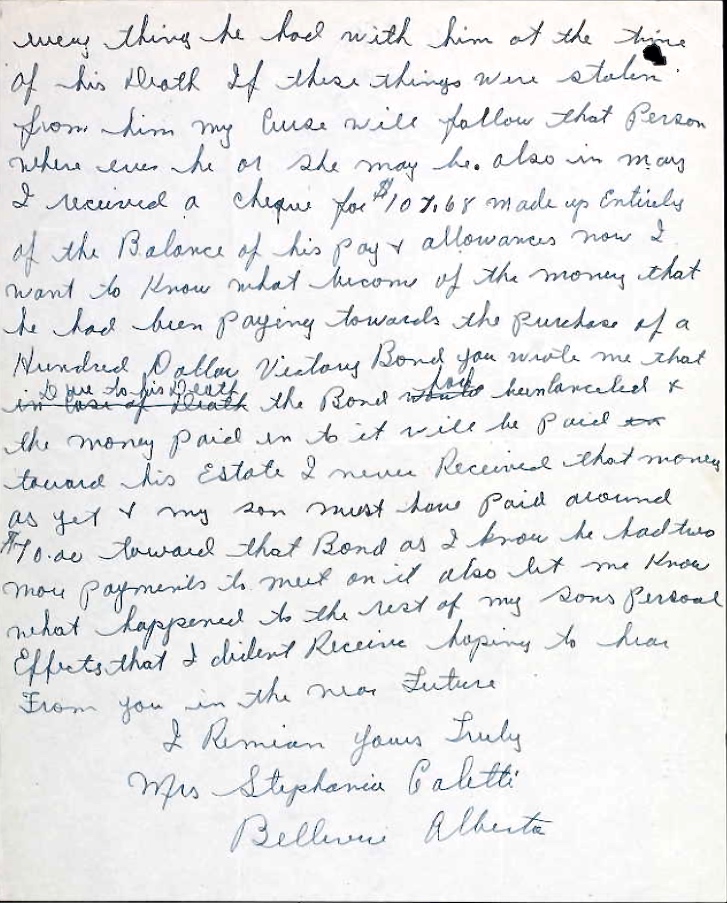 every thing he had with him at the time
of his Death If these things were stolen
from him my Curse will follow that Person
where ever he or she may be. also in may
I received a cheque for $107.68 made up Entirely
of the Balance of his pay & allowances now I
want to Know what become of the money that
he had been paying towards the purchase of a
Hundred Dollar Victory Bond you wrote me that
Due to his Death had
in Case of Death the Bond would been canceled &
the money paid in to it will be paid
toward his Estate I never Received that money
as yet & my son must have paid around
$70.00 toward that Bond as I know he had two
more payments to meet on it also let me Know
what happened to the rest of my sons Personal
Effects that I dident Receive hoping to hear
From you in the near Future
I Remian yours Truly
Mrs Stephania Caletti
Bellevue Alberta